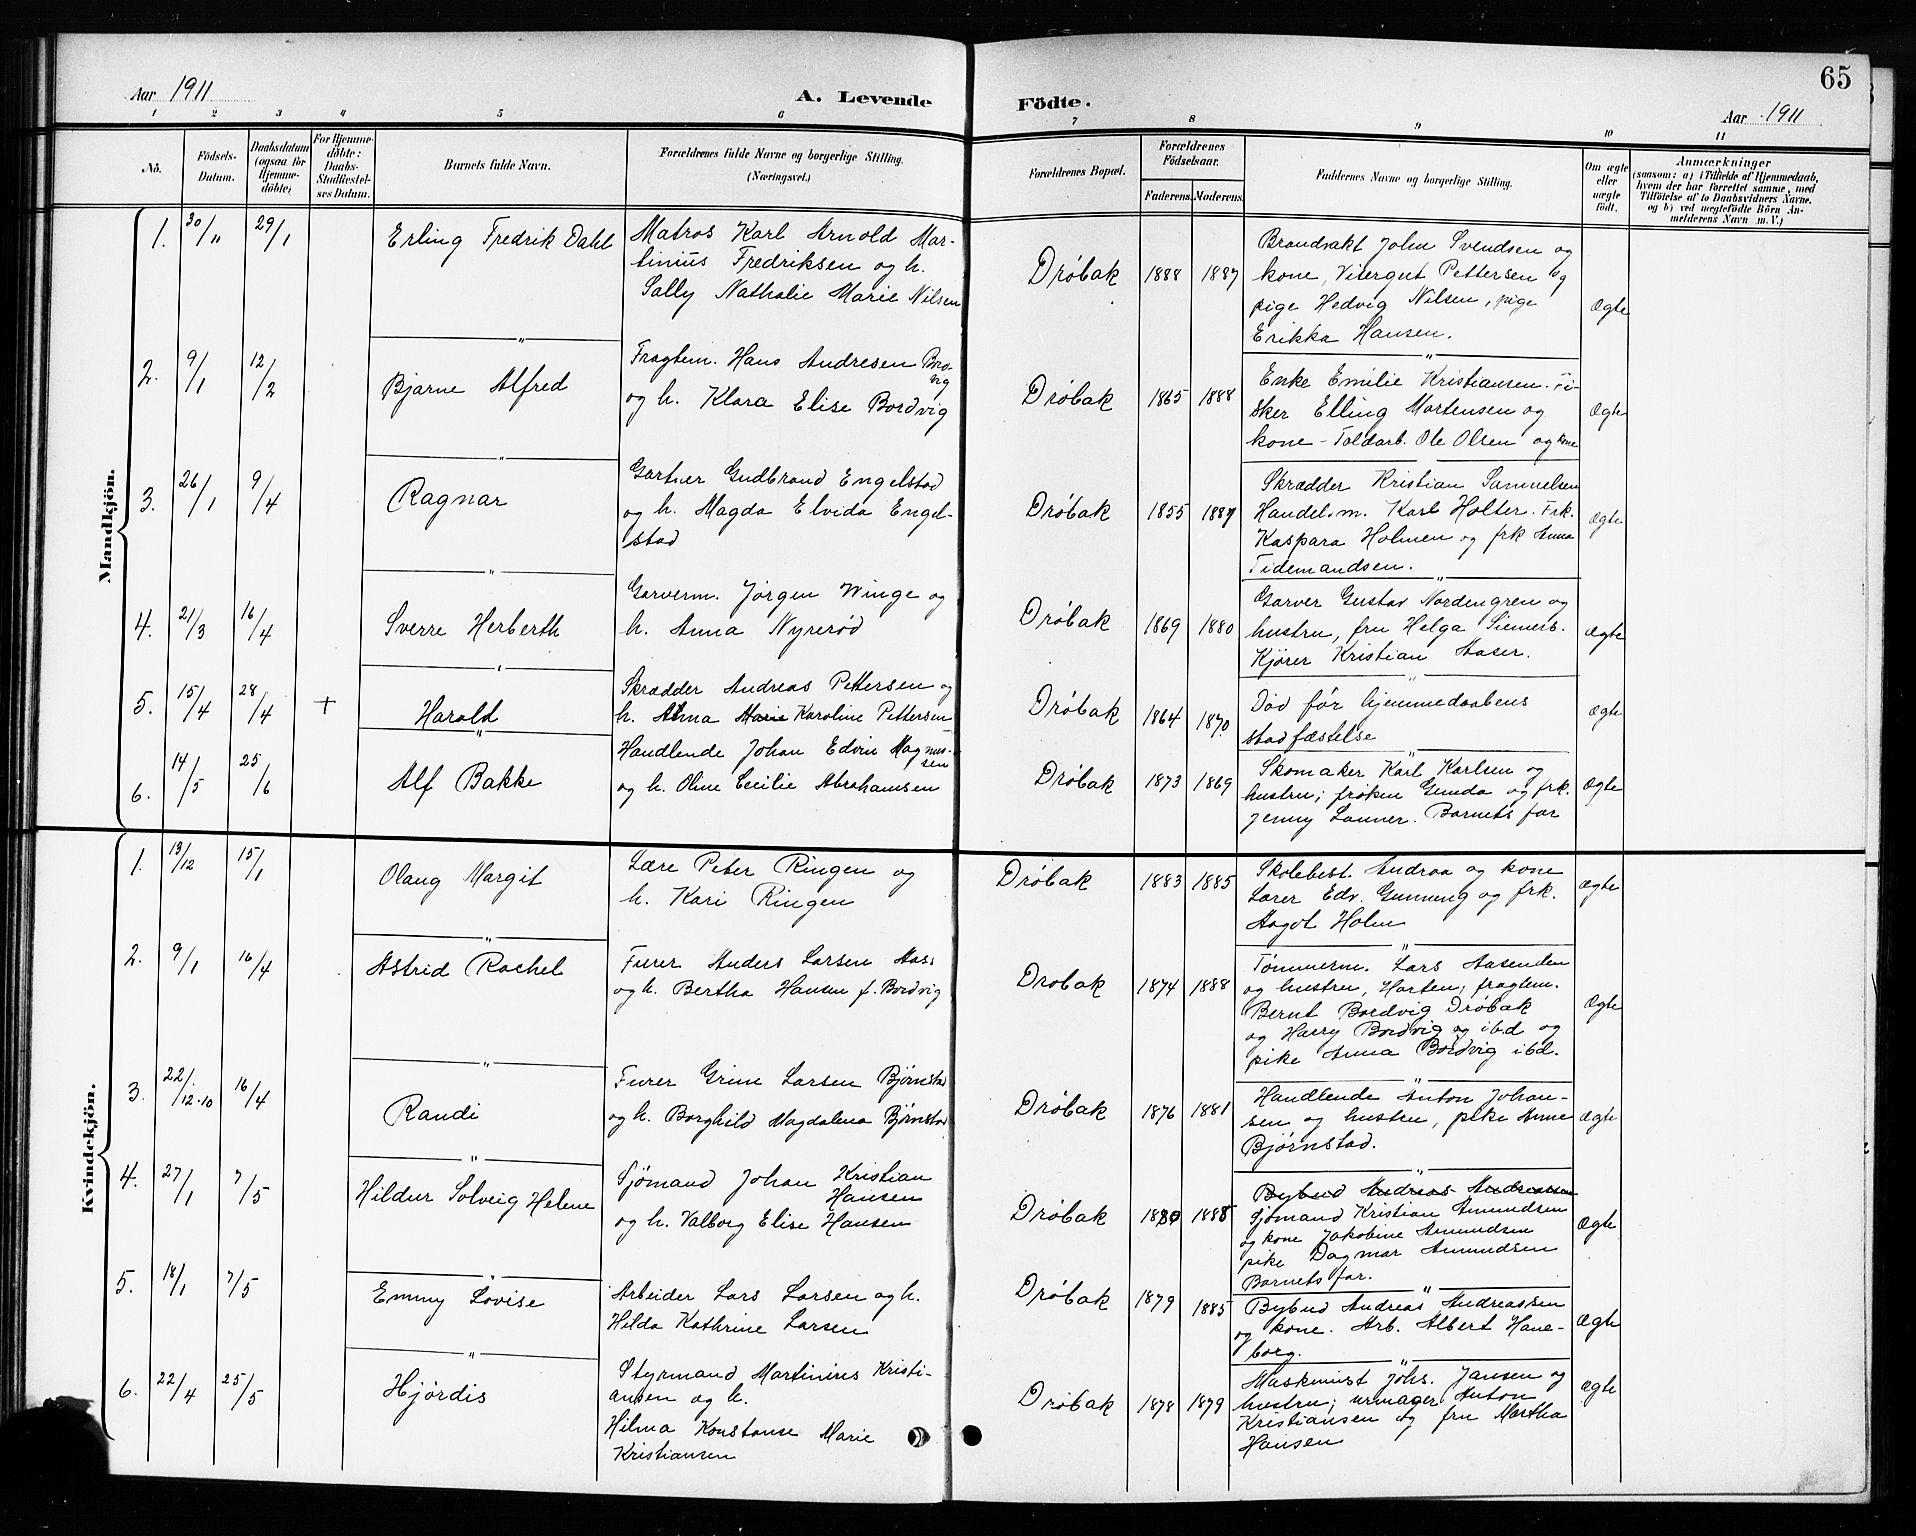 65
Aar 1911
A. Levende Födte.
Aar 1911
1 2 3 4 5 6 7 8 9 10 11
No.
Födsels-
Datum.
Daabsdatum
(ogsaa for
Hjemme-
döbte)
For Hjemme-
döbte:
Daabs-
Stadfæstel-
ses Datum.
Barnets fulde Navn.
Forældrenes fulde Navne og borgerlige Stilling.
(Næringsvei.)
Forældrenes Bopæl.
Forældrenes
Födselsaar.
Faderens. Moderens.
Faddernes Navne og borgerlige Stilling.
Om ægte
eller
uægte
födt.
Anmærkninger
(saasom: a) i Tilfælde af Hjemmedaab,
hvem der har forrettet samme, med
Tilföielse af to Daabsvidners Navne.
og b) ved uægtefödte Börn An-
melderens Navn m. V.)
Mandkjön.
1. 30/11 29/1 Erling Fredrik Dahl
Matros Karl Arnold Mar-
tinius Fredriksen og h.
Sally Nathalie Marie Nilsen
Drøbak 1888 1887
Brandvakt John Svendsen og
kone, Visergut Pettersen og
pige Hedvig Nilsen, pige
Erikka Hansen.
Ægte
2. 9/1 12/2 Bjarne Alfred
Fragtem. Hans Andresen Bor-
vig
og h. Klara Elise Bordvig
Drøbak 1865 1888
Enke Emilie Kristiansen. Fi-
sker Elling Mortensen og
kone - Toldarb. Ole Olsen og kone
Ægte
3. 26/1 9/4 Ragnar
Gartner Gudbrand Engelstad
og h. Magda Elvida Engel-
stad
Drøbak 1855 1887
Skrædder Kristian Samuelsen
Handelsm. Karl Holter. Frk.
Kaspara Holmen og frk Anna
Tidemandsen.
Ægte
4. 21/3 16/4 Sverre Herberth
Garverm. Jørgen Winge og
h. Anna Nyrerød
Drøbak 1869 1880
Garver Gustav Nordengren og
hustru, fru Helga Siemers.
Kjører Kristian Aaser.
Ægte
5. 15/4 28/4 + Harald
Skrædder Andreas Pettersen og
h. Alma Marie Karoline Pettersen
Drøbak 1864 1870
Død før hjemmedaabens
stadfæstelse
Ægte
6. 14/5 25/6 Alf Bakke
Handlende Johan Edvin Magnus-
sen
og h. Oline Cecilie Abrahamsen
Drøbak 1873 1869
Skomaker Karl Karlsen og
hustru; frøken Gunda og frk.
Jenny Lanner. Barnets far
Ægte
Kvindekjön.
1. 13/12 15/1 Olaug Margit
Lære Peter Ringen og
h. Kari Ringen
Drøbak 1883 1885
Skolebest. Andraa og kone
Lærer Edv. Gunneng og frk.
Aagot Holm
Ægte
2. 9/1 16/4 Astrid Rachel
Furer Anders Larsen Aas
og h. Bertha Hansen f. Bordvig
Drøbak 1874 1888
Tømmerm. Lars Aasenden
og hustru, Horten; fragtem.
Bernt Bordvig Drøbak
og Harry Bordvig og ibd og
pike Anna Bordvig ibd.
Ægte
3. 22/12-10 16/4 Randi
Furer Grim Larsen Bjørnstad
og h. Borghild Magdalena Bjørnstad
Drøbak 1876 1881
Handlende Anton Johan-
sen og hustru, pike Anne
Bjørnstad.
Ægte
4. 27/1 7/5 Hildur Solveig Helene
Sjømand Johan Kristian
Hansen
og h. Valborg Elise Hansen
Drøbak 1880 1885
Bybud Andreas Andreassen
Sjømand Kristian Amundsen
og kone Jakobine Amundsen
pike Dagmar Amundsen
Barnets far.
Ægte
5. 18/1 7/5 Emmy Lovise
Arbeider Lars Larsen og h.
Hilda Kathrine Larsen
Drøbak 1879 1885
Bybud Andreas Andreassen
og kone. Arb. Albert Hane-
borg.
Ægte
6. 22/4 25/5 Hjördis
Styrmand Martinius Kristi-
ansen og h.
Hilma Konstanse Marie
Kristiansen
Drøbak 1878 1879
Maskinist Johs. Jansen og
hustru; urmager Anton
Kristiansen og fru Martha
Hansen
Ægte